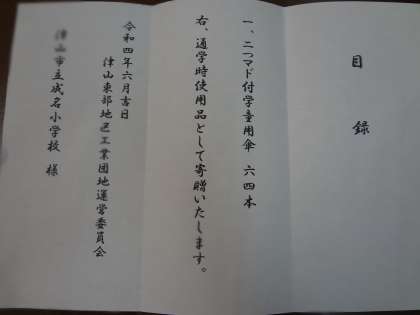 目録
一、二つマド付学童用傘 六四本
右、通学時使用品として寄贈いたします。
令和四年六月吉日
津山東部地区工業団地運営委員会
津山市立成名小学校 様